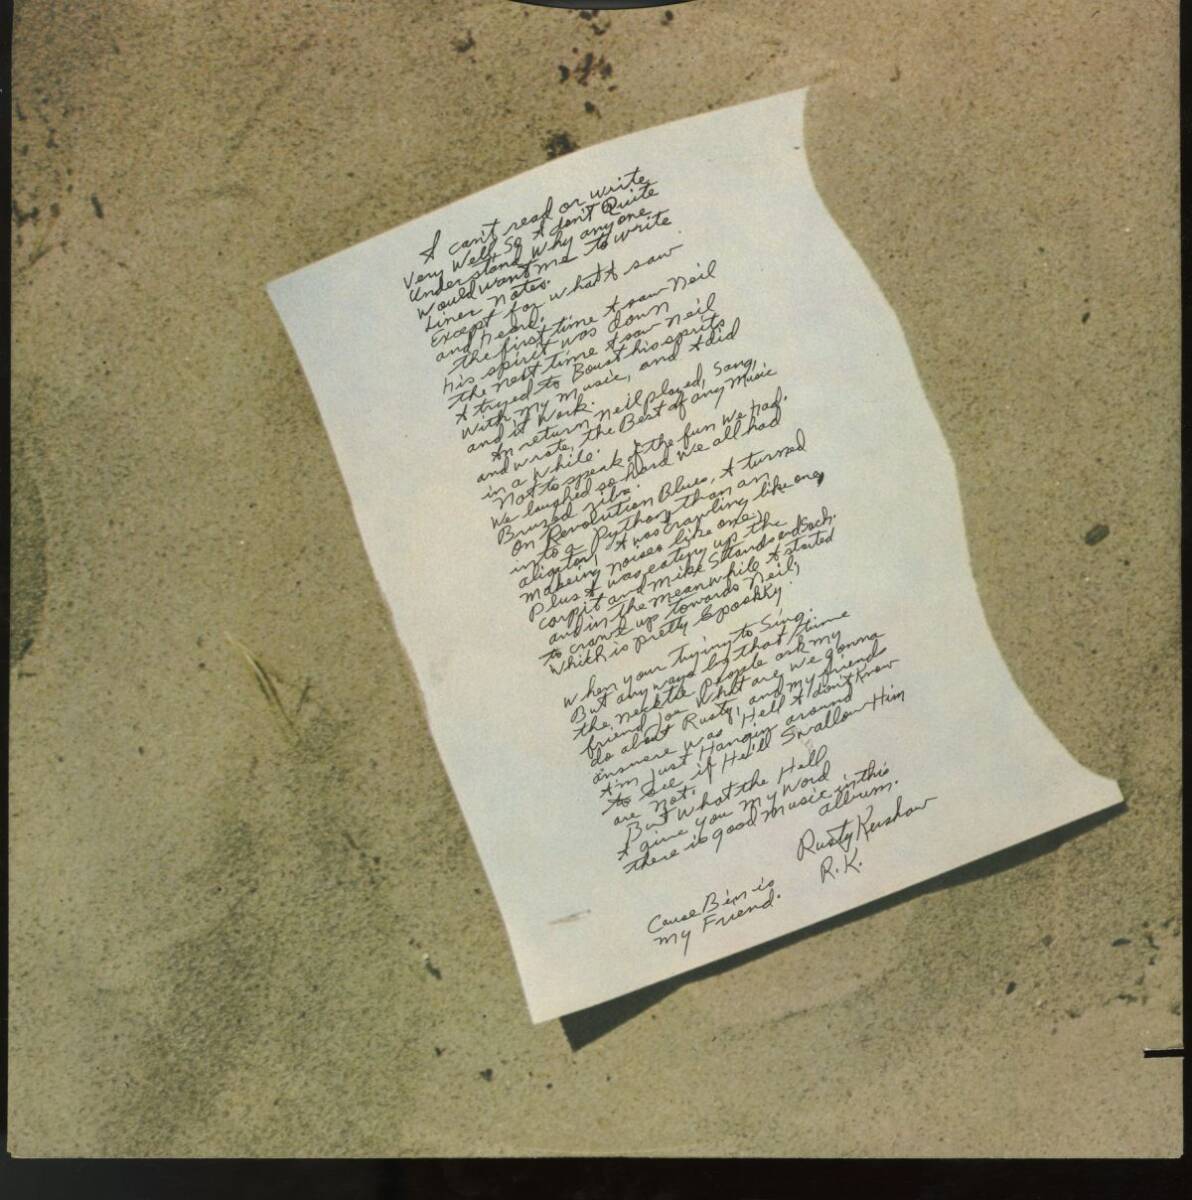 I can't read or write
Very Well, So I don't Quite
Understand Why anyone
Would want me to write
Liner Notes.
Except for what I saw
and heard.
the first time I saw Neil
his spirit was down
the next time I saw Neil
I tryed to Boust his spirits
With my Music, and I did
and it Work.
In return Neil played, Sang,
and wrote, the Best of any Music
in a while.
Not to speak of the fun we had.
We laughed so hard we all had
Bruzed ribs.
On Revolution Blues, I turned
in to a Python, than an
aligator, I was crawling like one,
making noises like one,
Plus I was eating up the
carpit and Mike Stands and Sach.
and in the meanwhile I started
to crawl up towards Neil,
Which is pretty Spookky
when your trying to Sing.
But any ways by that time
the necktie people ask my
friend Joe What are we gonna
do about Rusty, and my friends
answere was Hell I don't Know
I'm Just Hanging around
to See if He'll Swallow Him
are Not.
But What the Hell
I give you my Word
there is good Music in this
album.
Rusty Kershaw
R.K.
Cause Ben is
my Friend.